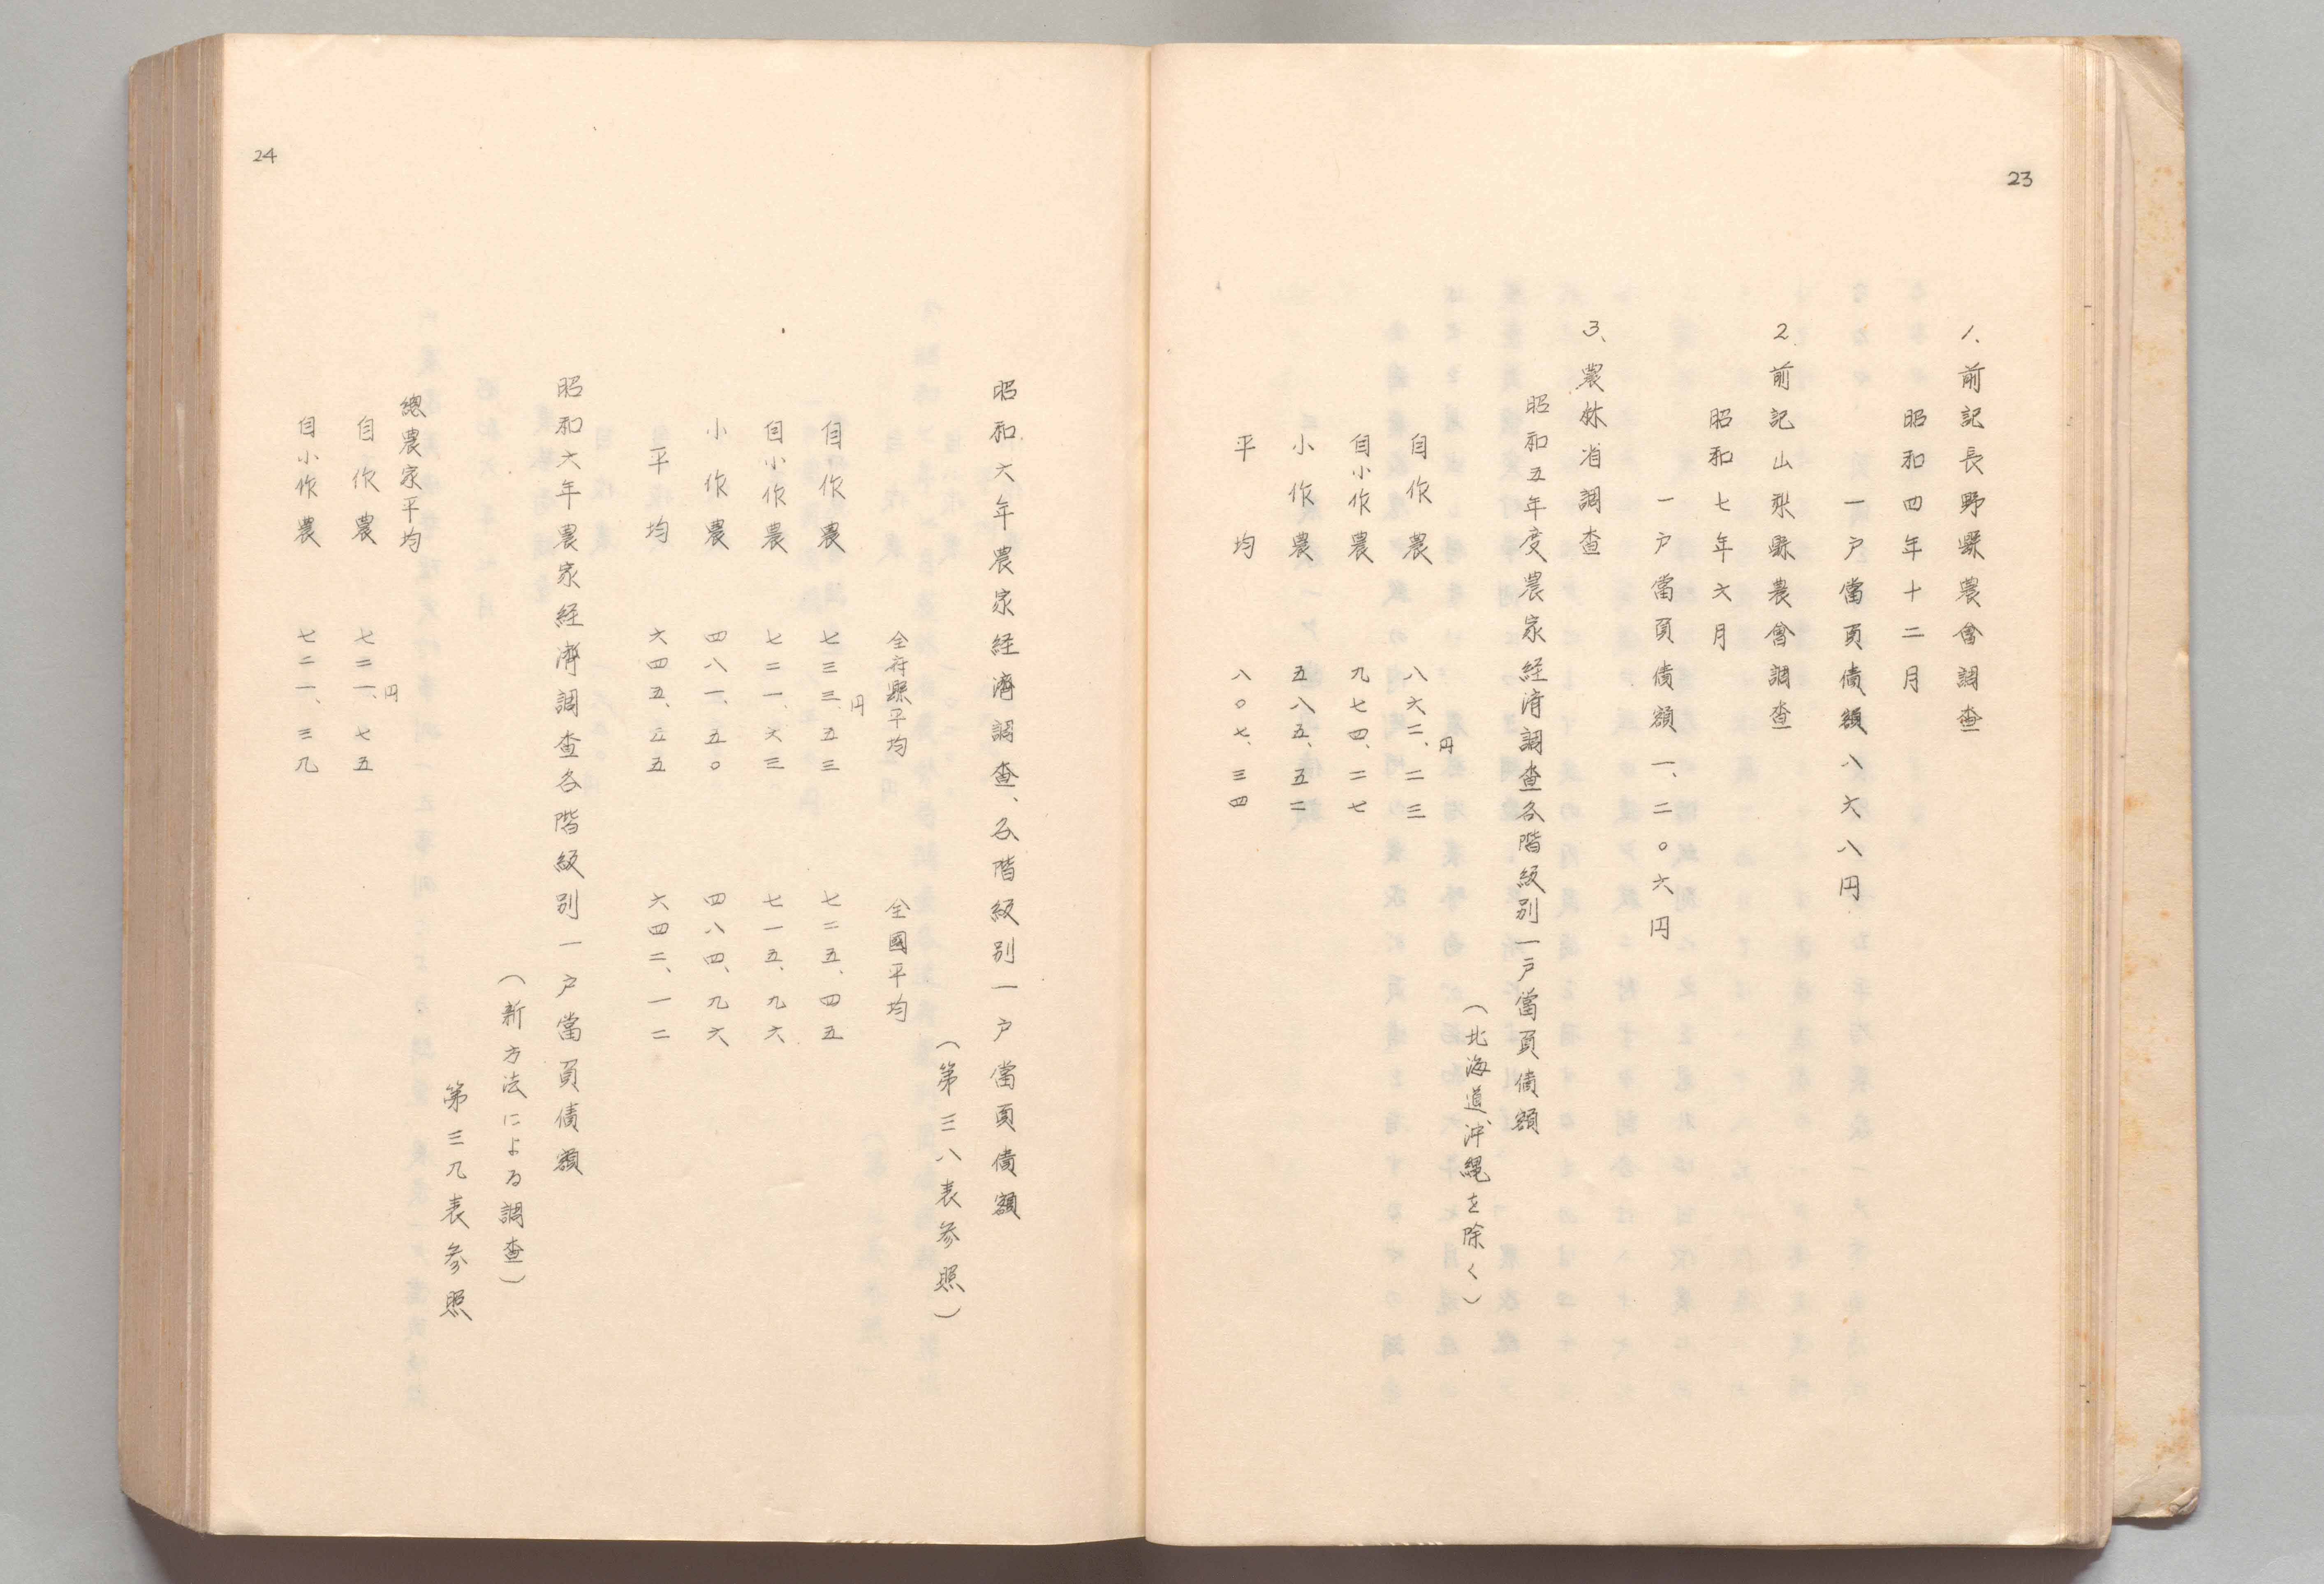 23
1、前記長野縣農會調査
昭和四年十二月
一戸當負債額八六八円
2、前記山梨縣農會調査
昭和七年六月
一戸當負債額一、二〇六円
3、農林省調査
昭和五年度農家経済調査各階級別一戸當負債額
（北海道、沖縄を除く）
円
自作農 八六二、二三
自小作農 九七四、二七
小作農 五八五、五二
平均 八〇七、三四
24
昭和六年農家経済調査、各階級別一戸當負債額
（第三八表参照）
全府縣平均 全國平均
円
自作農 七三三、五三 七二五、四五
自小作農 七二一、六三 七一五、九六
小作農 四八一、五〇 四八四、九六
平均 六四五、五五 六四二、一二
昭和六年農家経済調査各階級別一戸當負債額
（新方法による調査）
第三九表参照
總農家平均
円
自作農 七二一、七五
自小作農 七二一、三九